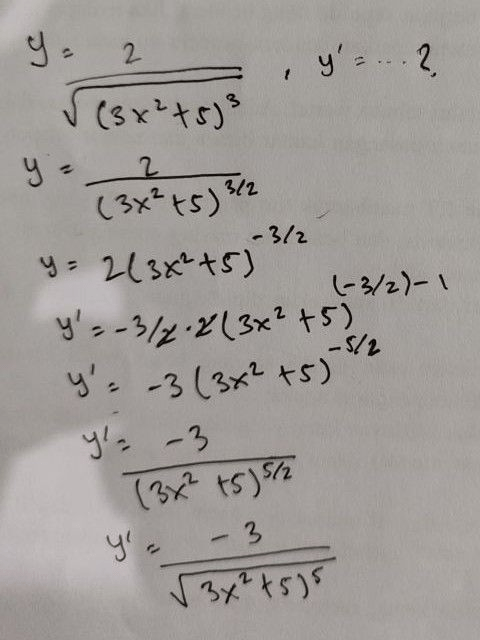 y = 2 / √(3x² + 5)³ , y' = ... ?
y = 2 / (3x² + 5)^3/2
y = 2(3x² + 5)^-3/2
y' = -3/2 · 2(3x² + 5)^(-3/2)-1
y' = -3(3x² + 5)^-5/2
y' = -3 / (3x² + 5)^5/2
y' = -3 / √3x² + 5)⁵